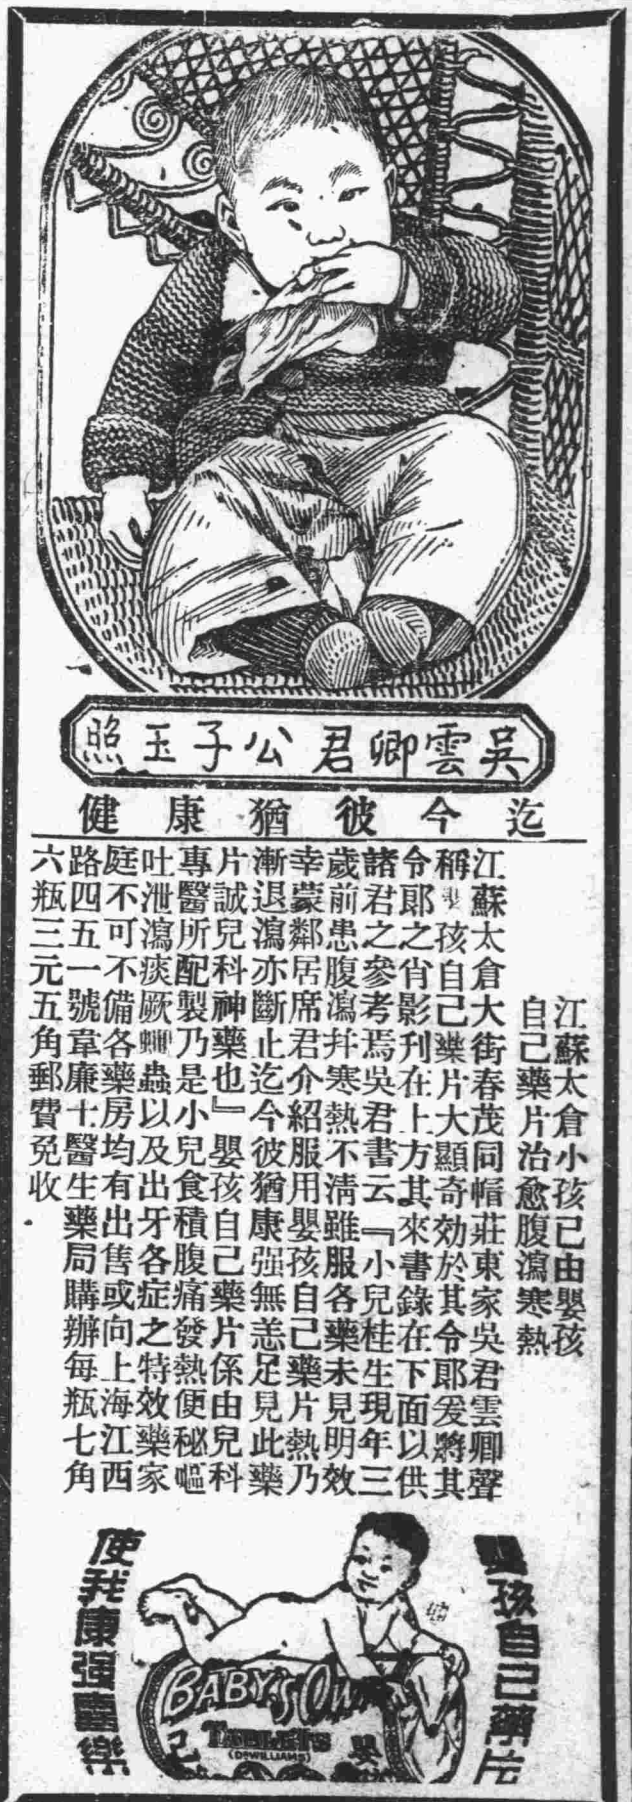 吳雲卿君公子玉照
迄今彼猶康健
江蘇太倉小孩已由嬰孩
自己藥片治愈腹瀉寒熱
江蘇太倉大街春茂同帽莊東家吳君雲卿聲
稱嬰孩自己藥片大顯奇効於其令郎爰將其
令郎之肖影刋在上方其來書錄在下面以供
諸君之參考焉吳君書云『小兒桂生現年三
歲前患腹瀉幷寒熱不淸雖服各藥未見明效
幸蒙鄰居席君介紹服用嬰孩自己藥片熱乃
漸退瀉亦斷止迄今彼猶康强無恙足見此藥
片誠兒科神藥也』嬰孩自己藥片係由兒科
專醫所配製乃是小兒食積腹痛發熱便秘嘔
吐泄瀉痰厥蛔蟲以及出牙各症之特效藥家
庭不可不備各藥房均有出售或向上海江西
路四五一號韋廉士醫生藥局購辦每瓶七角
六瓶三元五角郵費免收
嬰孩自己藥片
使我康强喜樂
BABY'S OWN
TABLETS
(DR WILLIAMS)
嬰
己